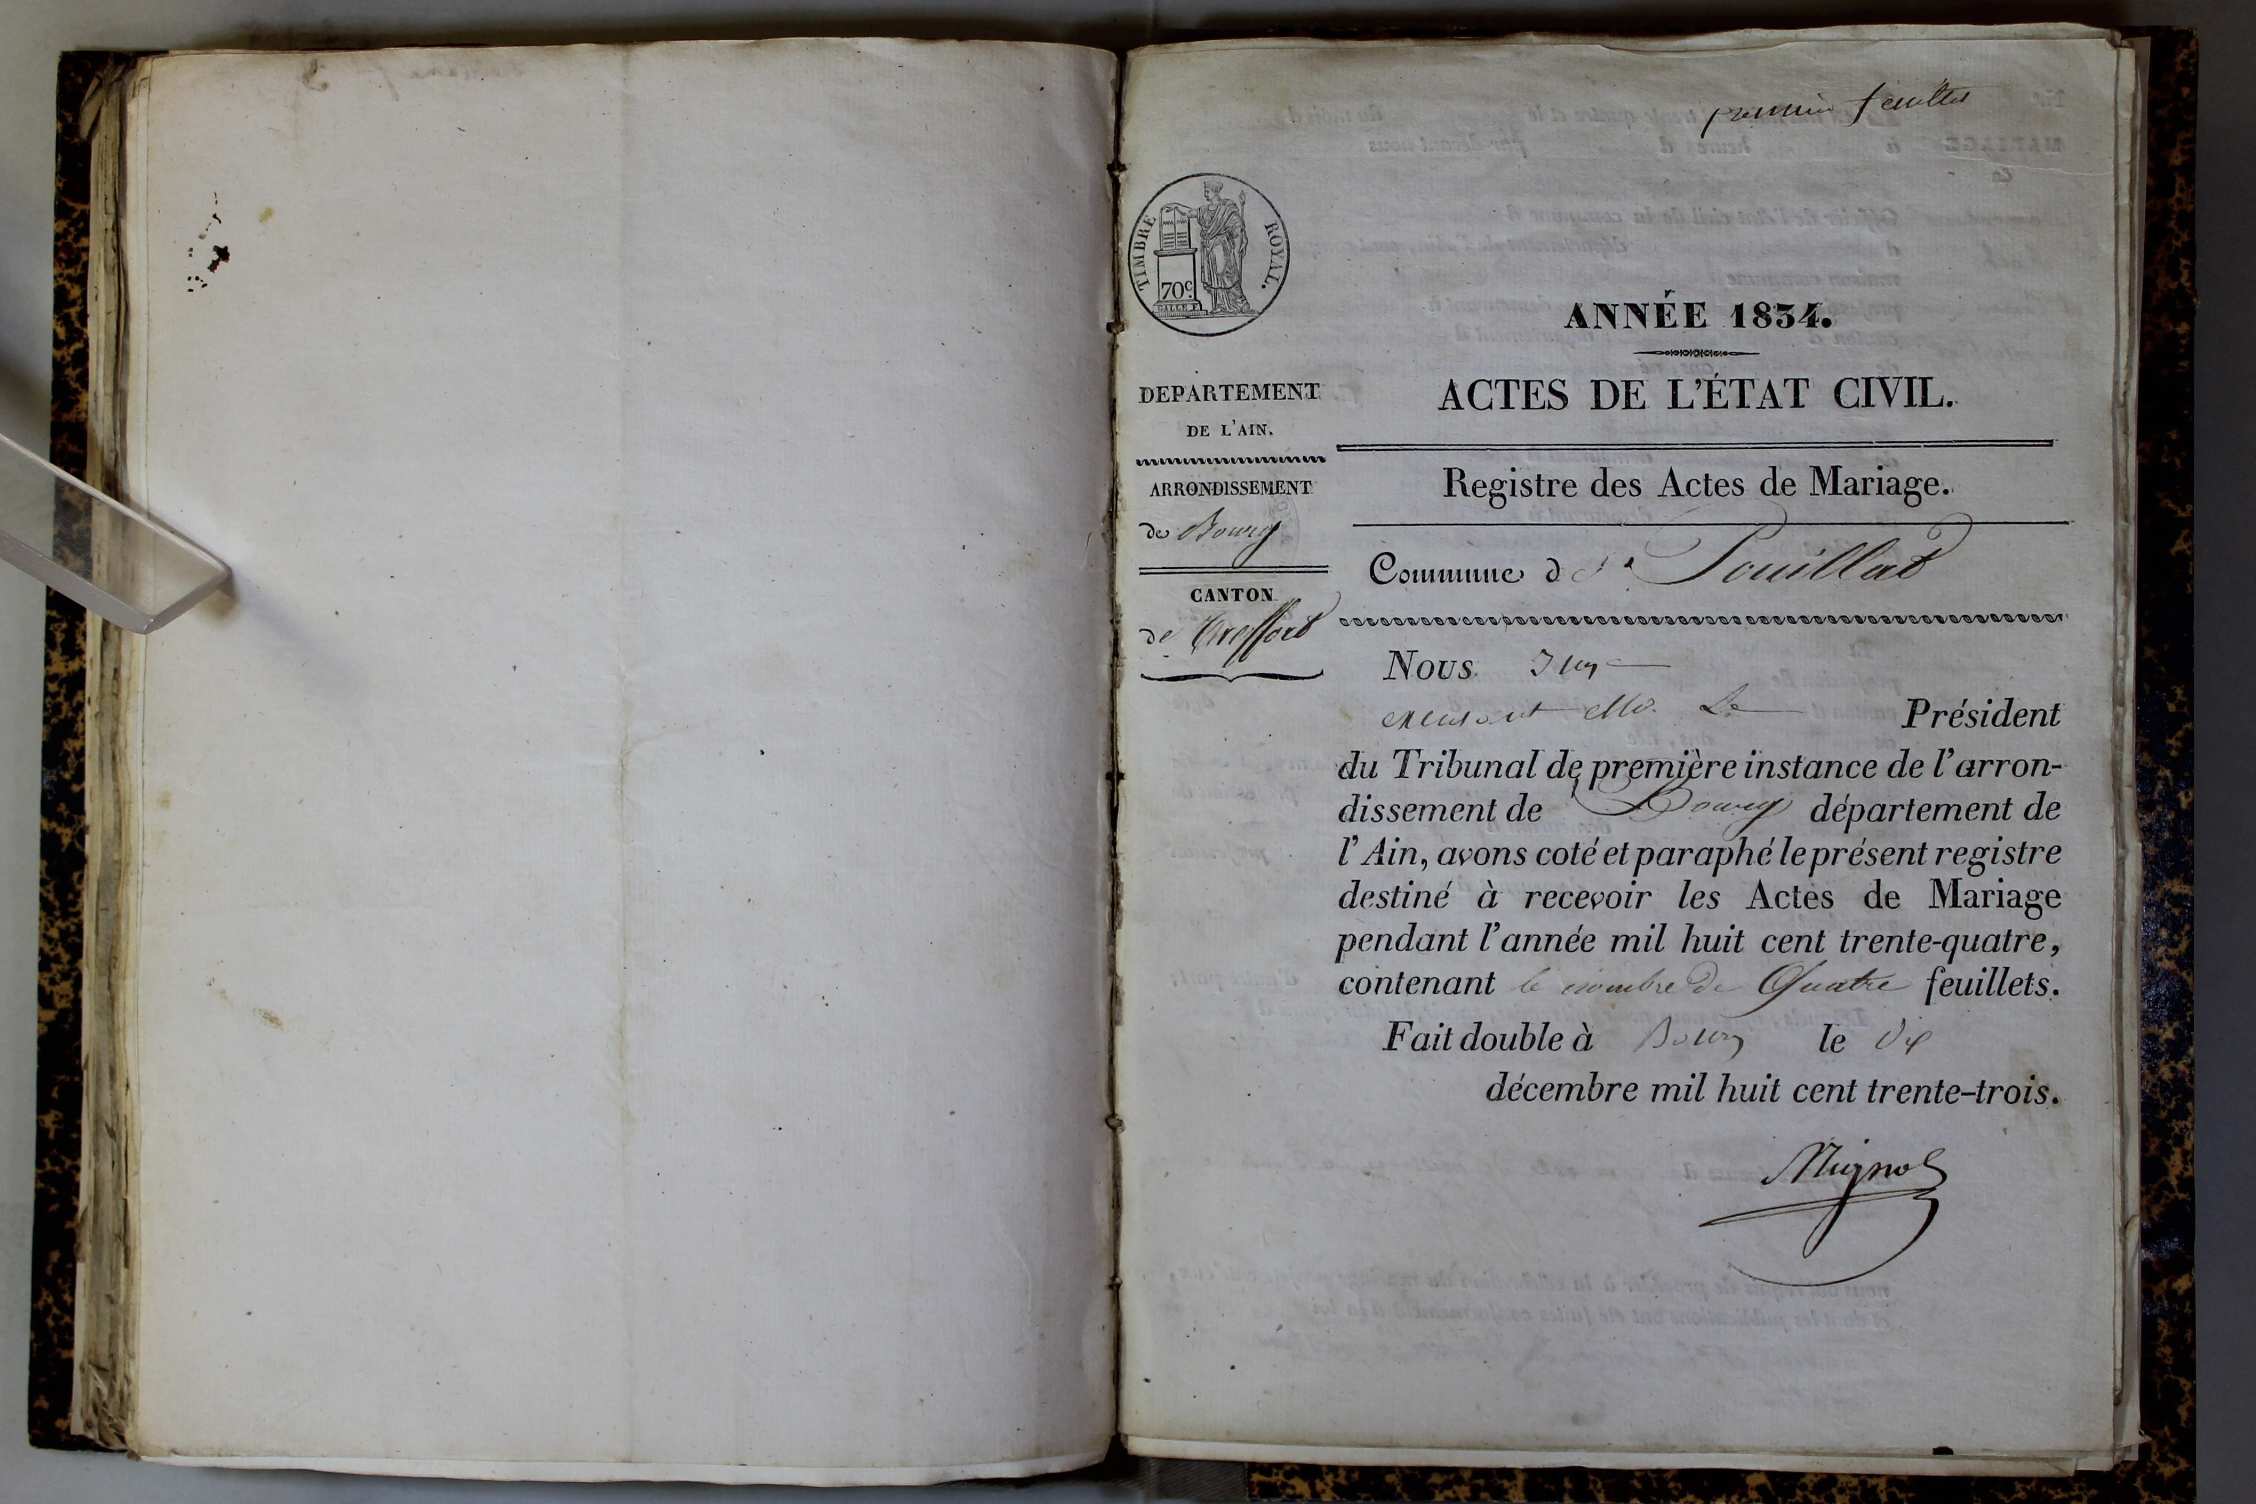 premier feuillet
TIMBRE ROYAL.
70c.
ANNÉE 1834.
DEPARTEMENT
DE L'AIN.
ACTES DE L'ÉTAT CIVIL.
ARRONDISSEMENT
de Bourg
Registre des Actes de Mariage.
CANTON
de Treffort
Commune de Pouillat
Nous Juge
Président
du Tribunal de première instance de l'arron-
dissement de Bourg département de
l'Ain, avons coté et paraphé le présent registre
destiné à recevoir les Actes de Mariage
pendant l'année mil huit cent trente-quatre,
contenant le nombre de Quatre feuillets.
Fait double à Bourg le dix
décembre mil huit cent trente-trois.